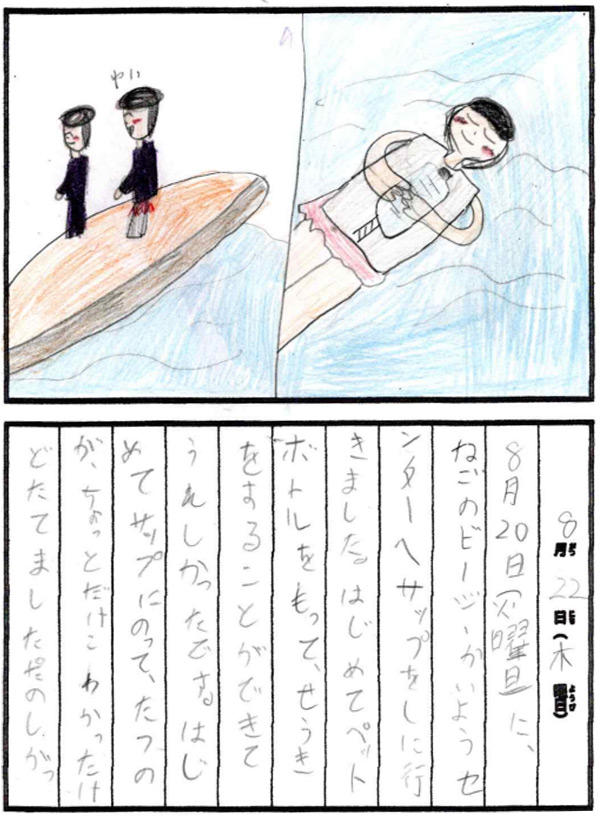 8月22日(木曜日)
8月20日(火曜日)に、
ねごのビージーかいようセ
ンターへサップをしに行
きました。はじめてペット
ボトルをもって、せうき
をすることができて
うれしかったです。はじ
めてサップにのって、たつの
が、ちょっとだけこわかったけ
どたてました。たのしかっ